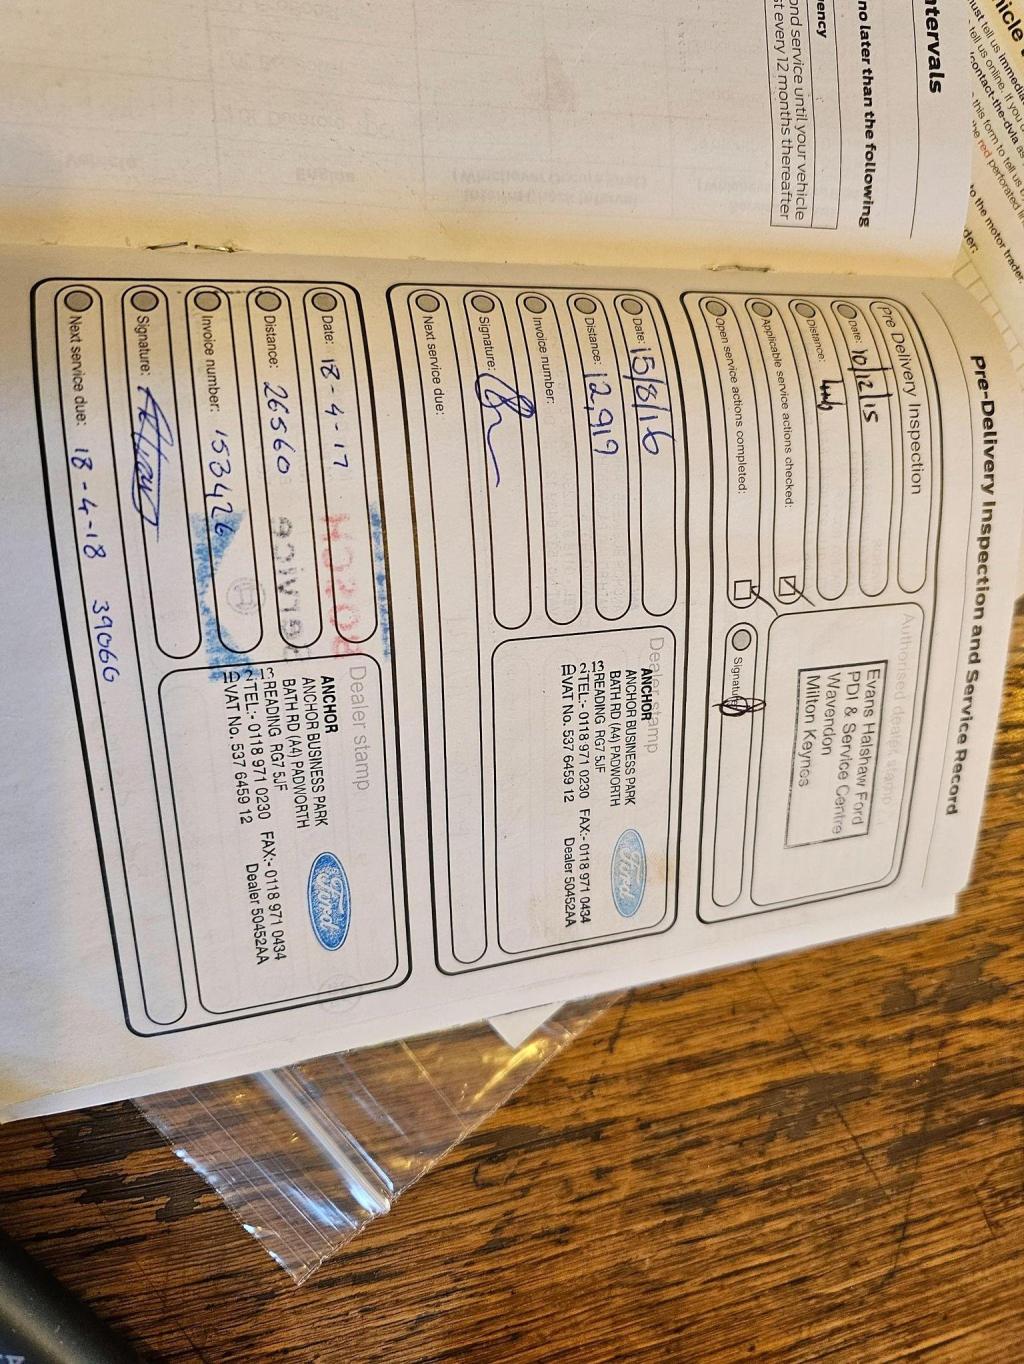 ntervals
no later than the following
ency
ond service until your vehicle
st every 12 months thereafter
Pre-Delivery Inspection and Service Record
Pre Delivery Inspection
Date: 10/12/15
Distance:
Applicable service actions checked:
Open service actions completed:
Authorised dealer stamp
Evans Halshaw Ford
PDI & Service Centre
Wavendon
Milton Keynes
Signature
Date: 15/8/16
Distance: 12,919
Invoice number:
Signature:
Next service due:
Dealer stamp
ANCHOR
ANCHOR BUSINESS PARK
BATH RD (A4) PADWORTH
READING RG7 5JF
TEL:- 0118 971 0230 FAX:- 0118 971 0434
VAT No. 537 6459 12 Dealer 50452AA
Ford
Date: 18-4-17
Distance: 26560
Invoice number: 153426
Signature:
Next service due: 18-4-18 39066
Dealer stamp
ANCHOR
ANCHOR BUSINESS PARK
BATH RD (A4) PADWORTH
READING RG7 5JF
TEL:- 0118 971 0230 FAX:- 0118 971 0434
VAT No. 537 6459 12 Dealer 50452AA
Ford
hicle
must tell us immedia
tell us online. If you
contact-the-dvla as
this form to tell us
the red perforated
to the motor trader.
der: